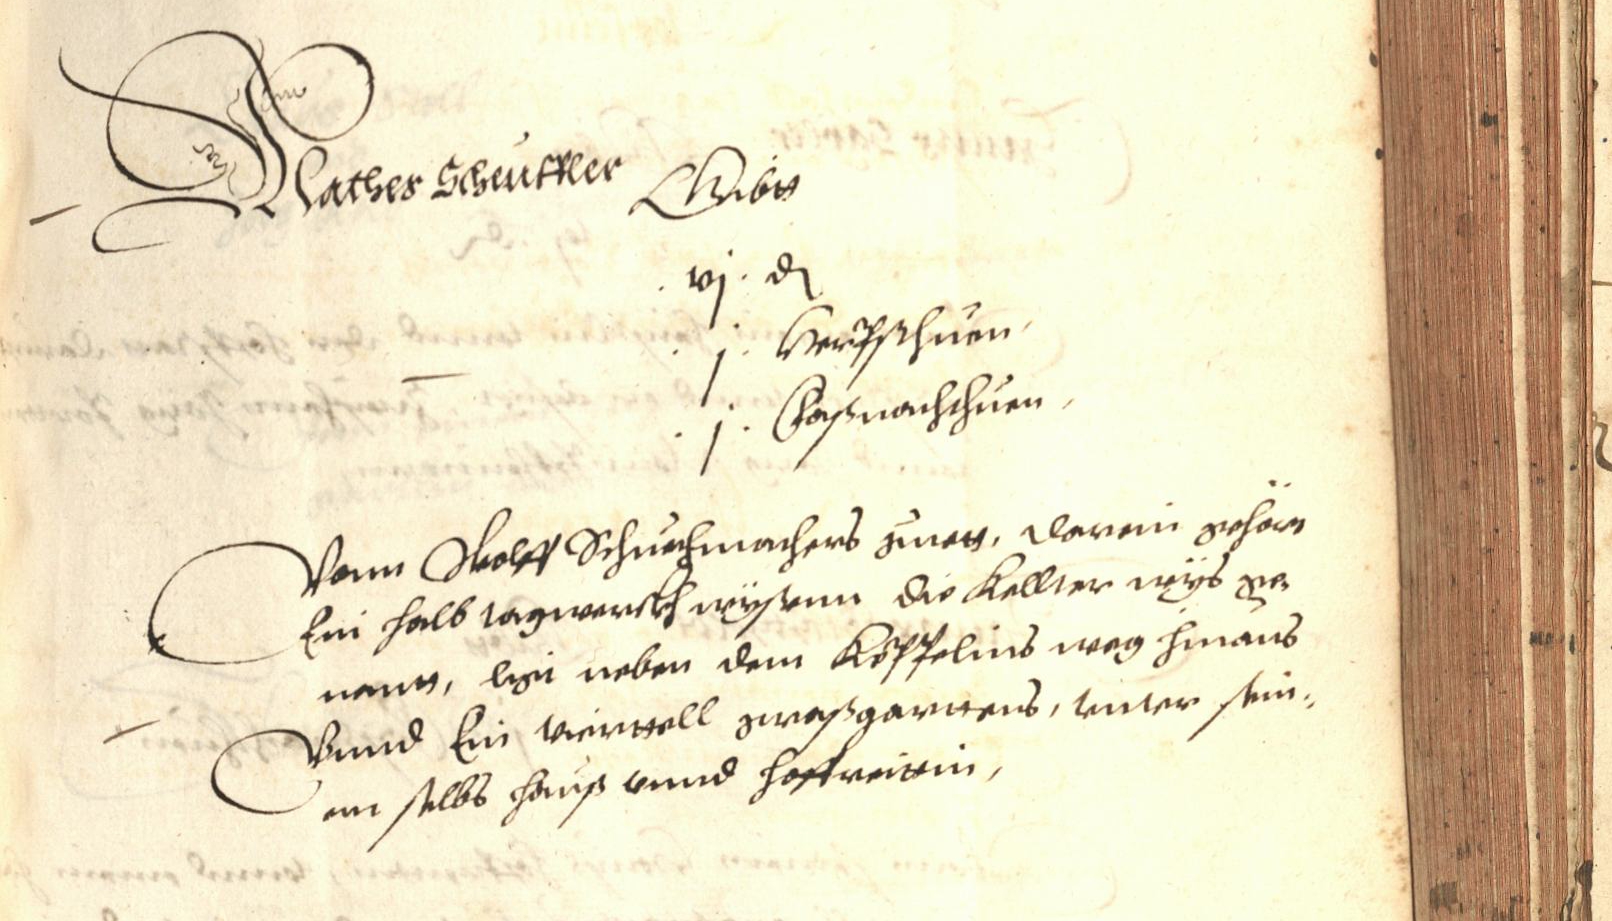 Mathes Scheuffler Gibtt
vj. d
.j. Herpsthuen,
.j. Faßnachthuen,
Vonn Wolff Schuchmachers guett, darein gehört
Ein halb tagwerckh wyßenn die Kellter wyß ge-
nantt, ligt neben dem Köppelins weg hinaus
Vnnd Ein viertell graßgarttens, hinter sein,
em selbs hauß vnnd hoffreittin,